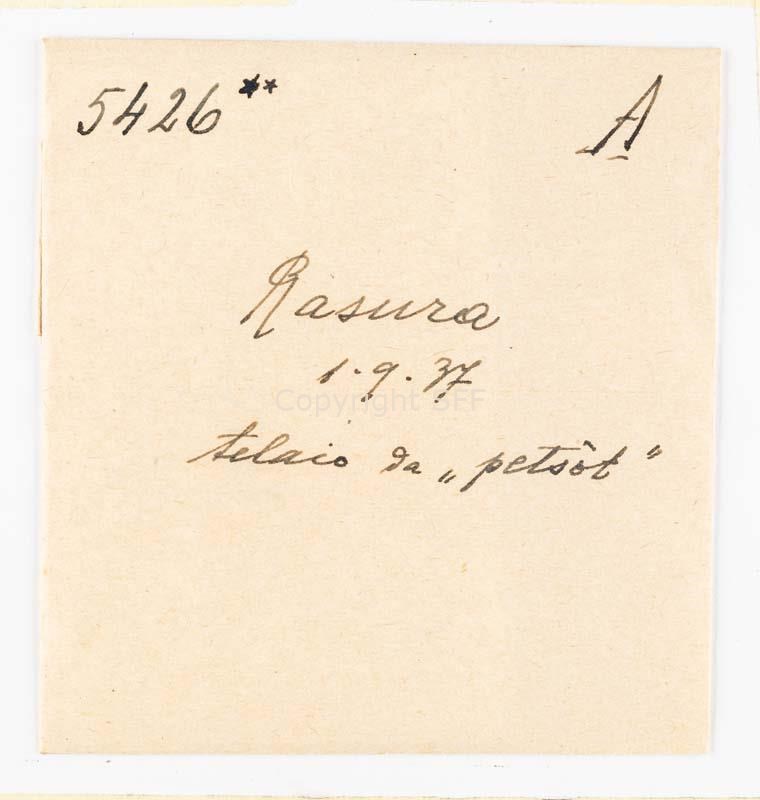 5426** A
Rasura
1.9.37
Copyright SEF
telaio da „petsôt"